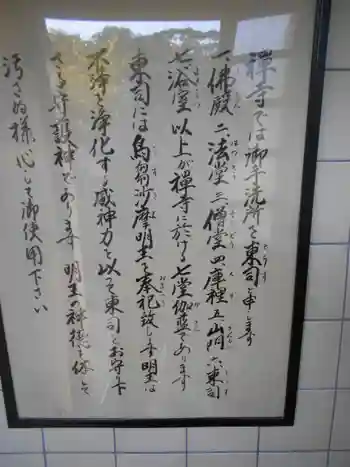 禅寺では御手洗所を東司と申します
一、佛殿 二、法堂 三、僧堂 四、庫裡 五、山門 六、東司
七、浴室 以上が禪寺に於ける七堂伽藍であります
東司には烏芻沙摩明王を奉祀致します 明王は
不浄を浄化する威神力を以て東司をお守り下
さる守護神であります 明王の神徳を体して
汚さぬ様 心して御使用下さい